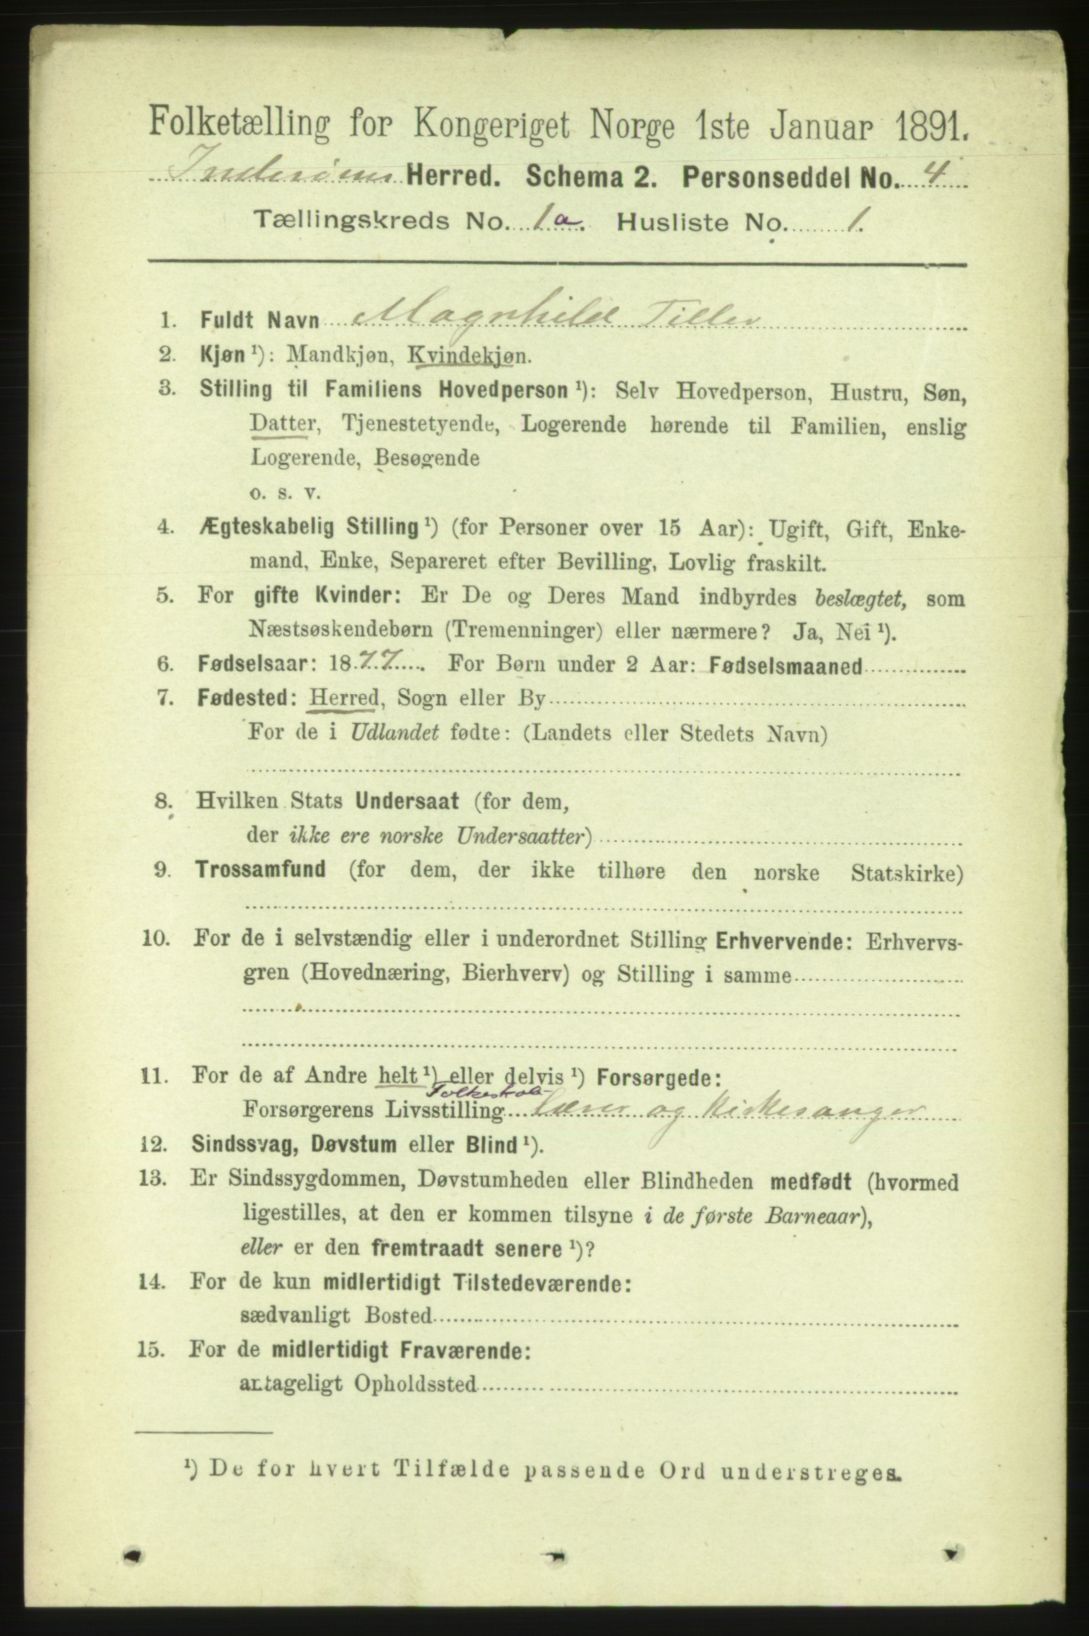 Folketælling for Kongeriget Norge 1ste Januar 1891.
Inderøens Herred. Schema 2. Personseddel No. 4
Tællingskreds No. 1a. Husliste No. 1.
1. Fuldt Navn Magnhild Tiller
2. Kjøn ¹): Mandkjøn, Kvindekjøn.
3. Stilling til Familiens Hovedperson ¹): Selv Hovedperson, Hustru, Søn,
Datter, Tjenestetyende, Logerende hørende til Familien, enslig
Logerende, Besøgende
o. s. v.
4. Ægteskabelig Stilling ¹) (for Personer over 15 Aar): Ugift, Gift, Enke-
mand, Enke, Separeret efter Bevilling, Lovlig fraskilt.
5. For gifte Kvinder: Er De og Deres Mand indbyrdes beslægtet, som
Næstsøskendebørn (Tremenninger) eller nærmere? Ja, Nei ¹).
6. Fødselsaar: 1877. For Børn under 2 Aar: Fødselsmaaned
7. Fødested: Herred, Sogn eller By
For de i Udlandet fødte: (Landets eller Stedets Navn)
8. Hvilken Stats Undersaat (for dem,
der ikke ere norske Undersaatter)
9. Trossamfund (for dem, der ikke tilhøre den norske Statskirke)
10. For de i selvstændig eller i underordnet Stilling Erhvervende: Erhvervs-
gren (Hovednæring, Bierhverv) og Stilling i samme
11. For de af Andre helt ¹) eller delvis ¹) Forsørgede:
Folkeskole-
Forsørgerens Livsstilling Lærer og Kirkesanger
12. Sindssvag, Døvstum eller Blind ¹).
13. Er Sindssygdommen, Døvstumheden eller Blindheden medfødt (hvormed
ligestilles, at den er kommen tilsyne i de første Barneaar),
eller er den fremtraadt senere ¹)?
14. For de kun midlertidigt Tilstedeværende:
sædvanligt Bosted
15. For de midlertidigt Fraværende:
antageligt Opholdssted
¹) De for hvert Tilfælde passende Ord understreges.